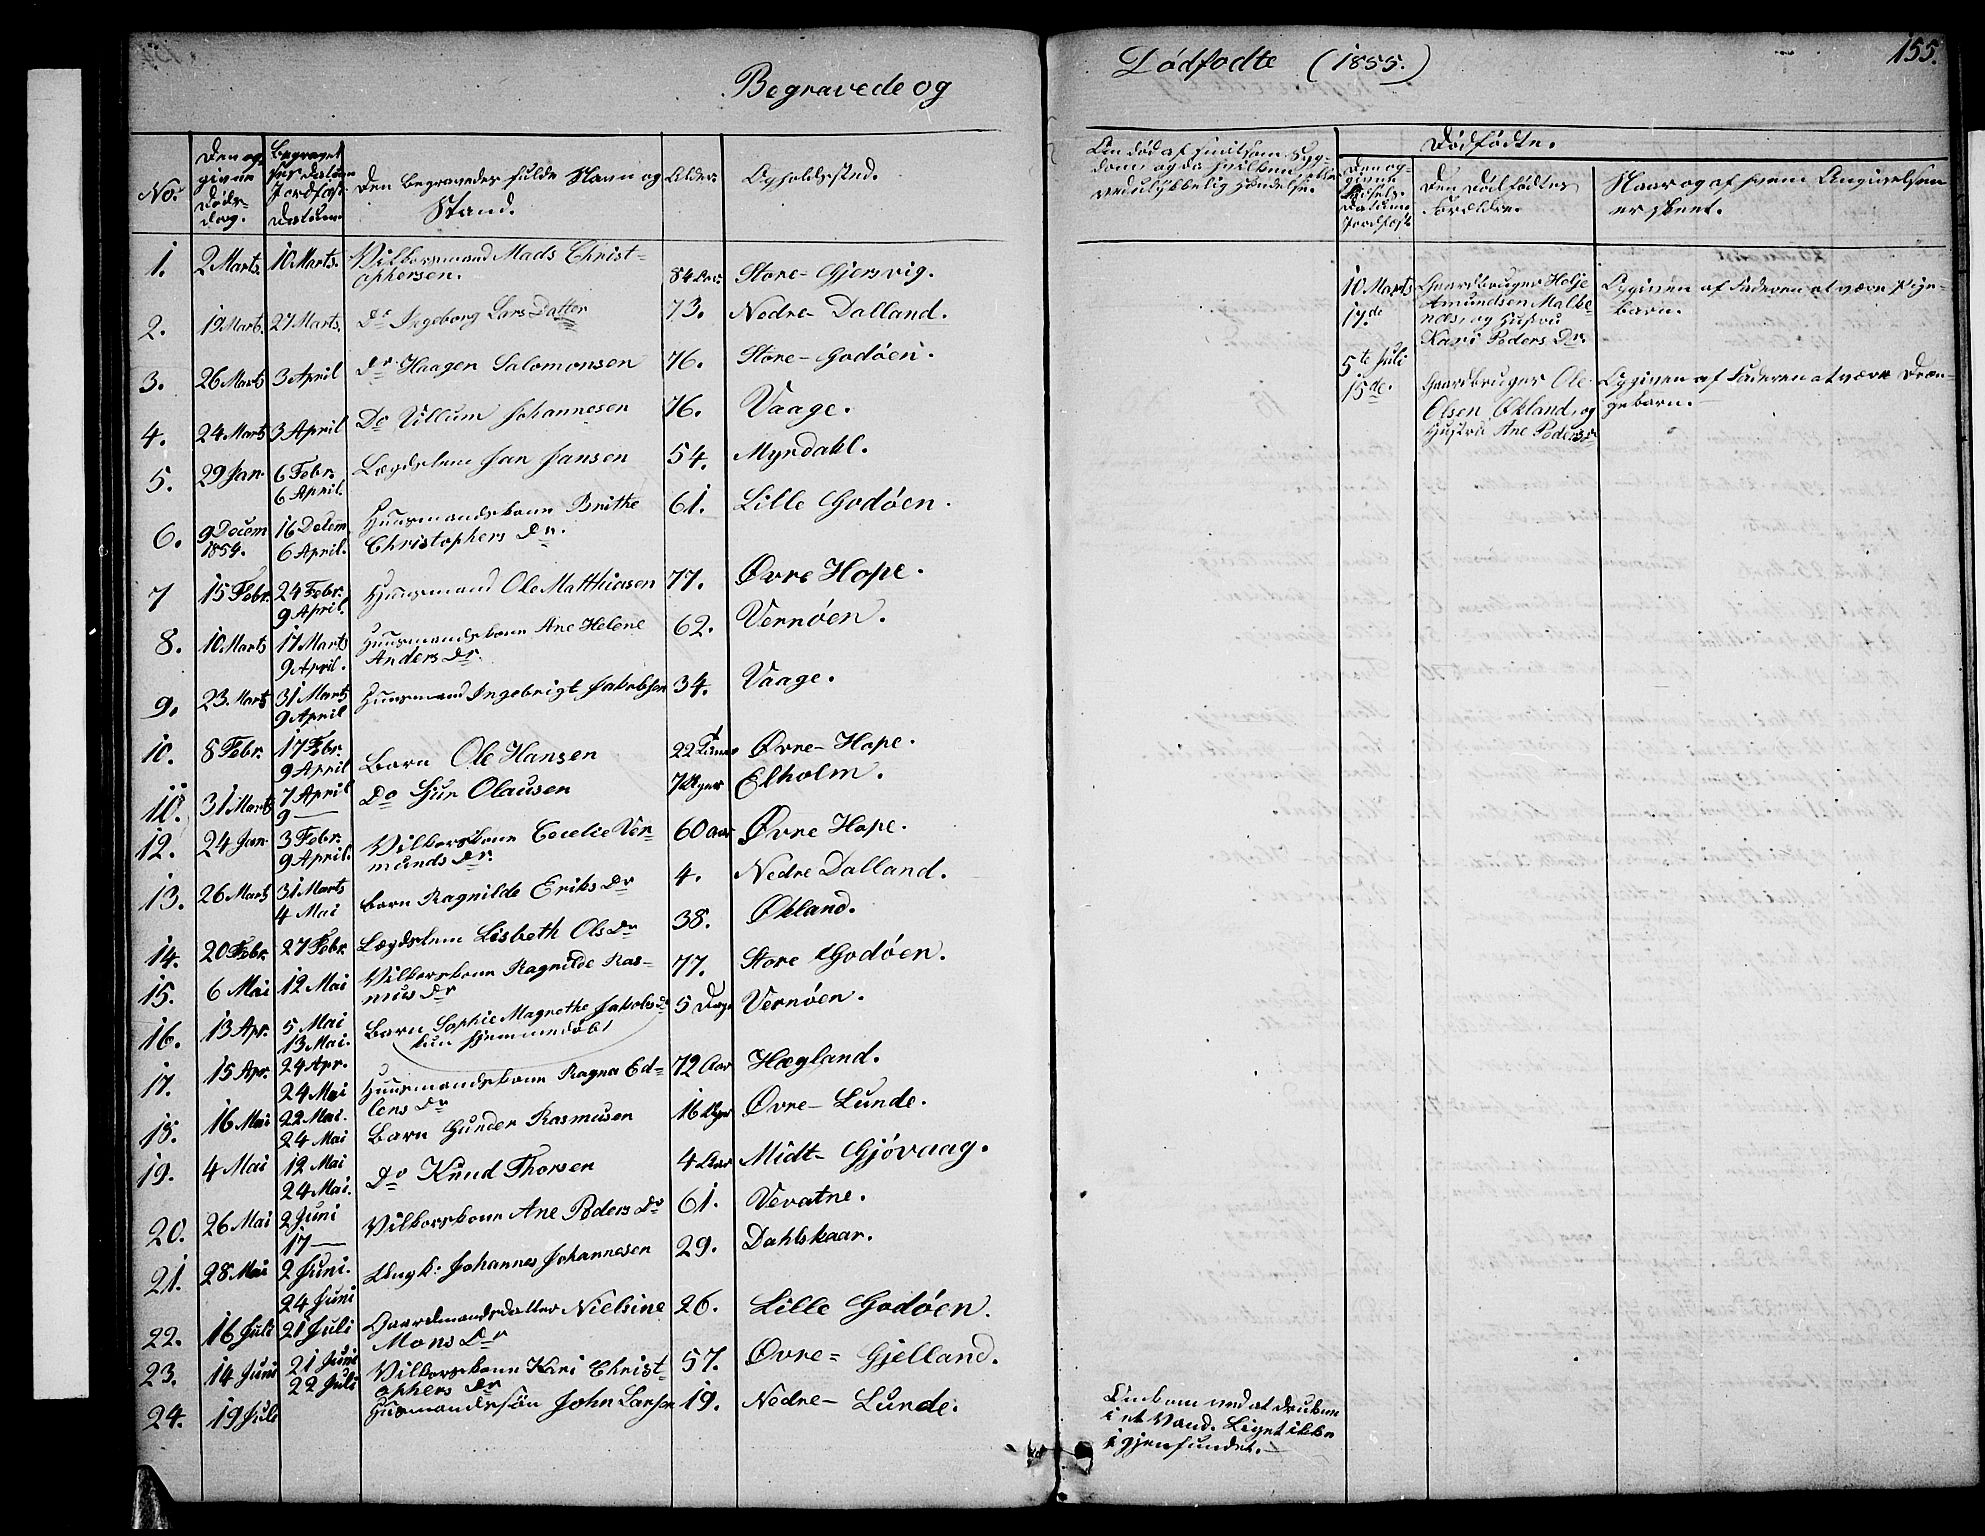 155.
Begravede og Dødfødte (1855.)
No.
Den op-
givne
Døds-
dag.
Begravet
Jordfæst
Datum
Den Begravedes fulde Navn og
Stand.
Alder.
Opholdssted.
Dødfødte.
Den op-
givne
Datum.
Jordfæst
Den Dødfødtes
Forældre.
Naar og af hvem Angivelsen
er skeet.
1. 2 Marts. 10 Marts. Vilkorsmand Mads Christ-
ophersen. 84 Aar. Store-Gjersvig.
2. 19 Marts. 27 Marts. Do Ingeborg Lars Datter 73. Nedre-Dalland.
3. 26 Marts 3 April Do Haagen Salomonsen 76. Store-Godøen.
4. 24 Marts 3 April Do Villum Johannesen 76. Vaage.
5. 29 Jan. 6 Febr. 6 April. Lægdslem Jan Jansen 54. Myrdahl.
6. 9 Decem 1854. 16 Decem 6 April. Huusmandskone Brithe
Christophers Dr. 61. Lille Godøen.
7 15 Febr. 24 Febr. 9 April. Huusmand Ole Matthiasen 77. Øvre Hope.
8. 10 Marts 17 Marts 9 April. Huusmandskone Ane Helene
Anders Dr. 62. Vernøen.
9. 23 Marts 31 Marts 9 April Huusmand Ingebrigt Jakobsen 34. Vaage.
10. 8 Febr. 17 Febr. 9 April Barn Ole Hansen 22 Timer Øvre-Hope.
11. 31 Marts 7 April 9 — Do Gjur Olausen 7 Uger Elholm.
12. 24 Jan 3 Febr. 9 April. Vilkorskone Cecelie Ver-
munds Dr. 60 Aar Øvre Hope.
13. 26 Marts 31 Marts 4 Mai Barn Ragnilde Eriks Dr 4. Nedre Dalland.
14. 20 Febr. 27 Febr. Lægdslem Lisbeth Ols Dr 38. Økland.
15. 6 Mai 12 Mai Vilkorskone Ragnilde Ras-
mus Dr 77. Store Godøen.
16. 13 Apr. 5 Mai 13 Mai. Barn Sophie Magrethe Jakobs Dr
kun hjemmedøbt 5 Dage Vernøen.
17. 15 Apr. 24 Apr. 24 Mai Huusmandskone Ragna Ed-
lens Dr 72 Aar Hægland.
18. 16 Mai 22 Mai. 24 Mai Barn Gunder Rasmusen 16 Uger Øvre-Lunde.
19. 4 Mai 12 Mai 24 Mai. Do Knud Thorsen 4 Aar Midt-Gjøvaag.
20. 26 Mai 2 Juni 17 — Vilkorskone Ane Peders Dr 61. Vevatne.
21. 28 Mai 2 Juni. 24 Juni Ungk: Johannes Johannesen 29. Dahlskaar.
22. 16 Juli 21 Juli Gaardmandsdatter Nielsine
Mons Dr 26. Lille Godøen.
23. 14 Juni 21 Juni 22 Juli Vilkorskone Kari Christ-
ophers Dr 57. Øvre-Gjelland.
24. 19 Juli Husmandssøn John Larsen 19. Nedre-Lunde.
Omkom ved at drukne
i et Vand. Liget ikke
igjenfundet.
10 Marts
17de
Gaardbruger Helje
Amundsen Malke-
næs, og Hustru
Kari Peders Dr.
Opgiven af Faderen at være Pige-
barn.
5te Juli
15de.
Gaardbruger Ole
Olsen Økland, og
Hustru Ane Peders Dr
Opgiven af Faderen at være Dren-
gebarn.